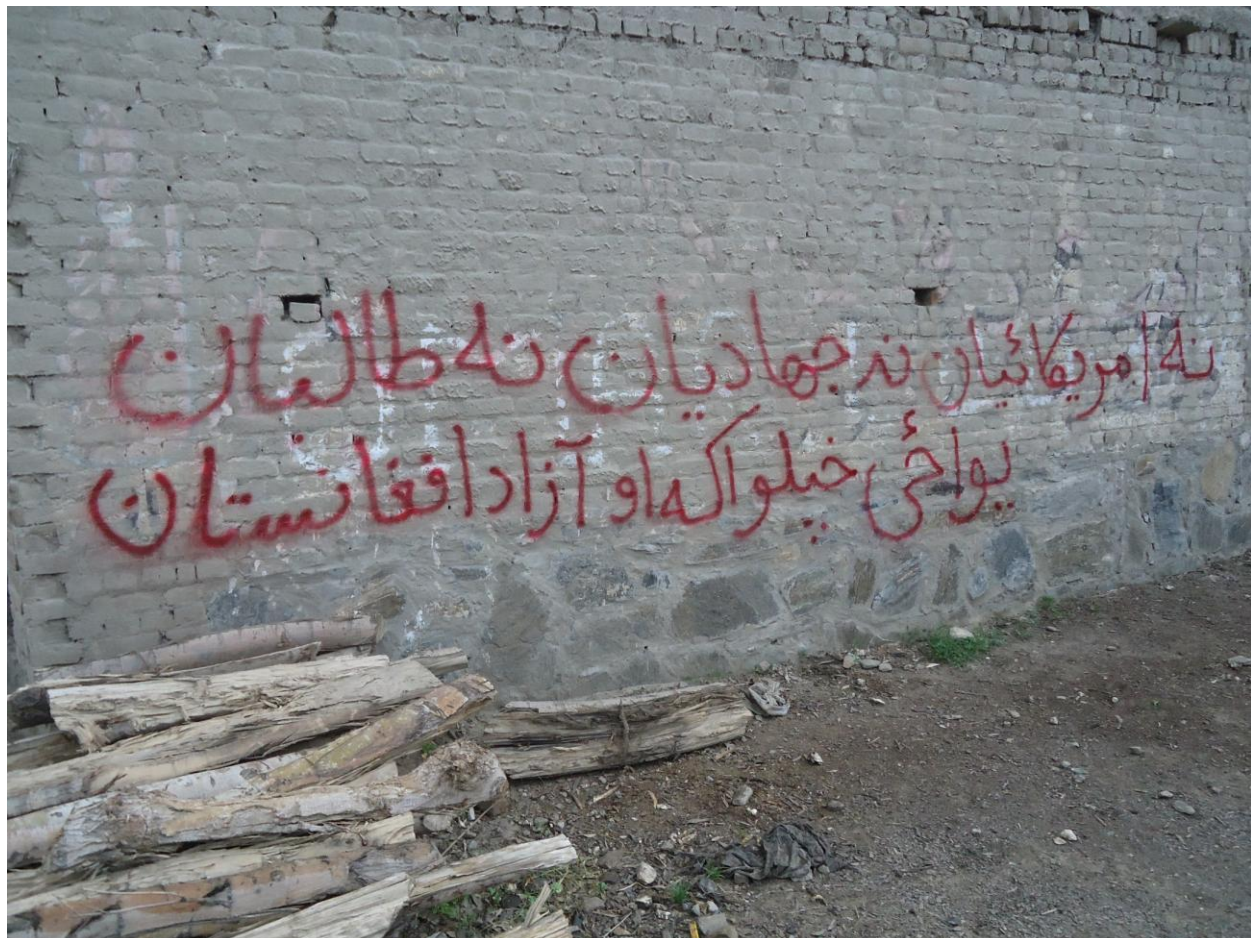 نه امریکائیان نه جهادیان نه طالبان
یواځی خپلواکه او آزاد افغانستان